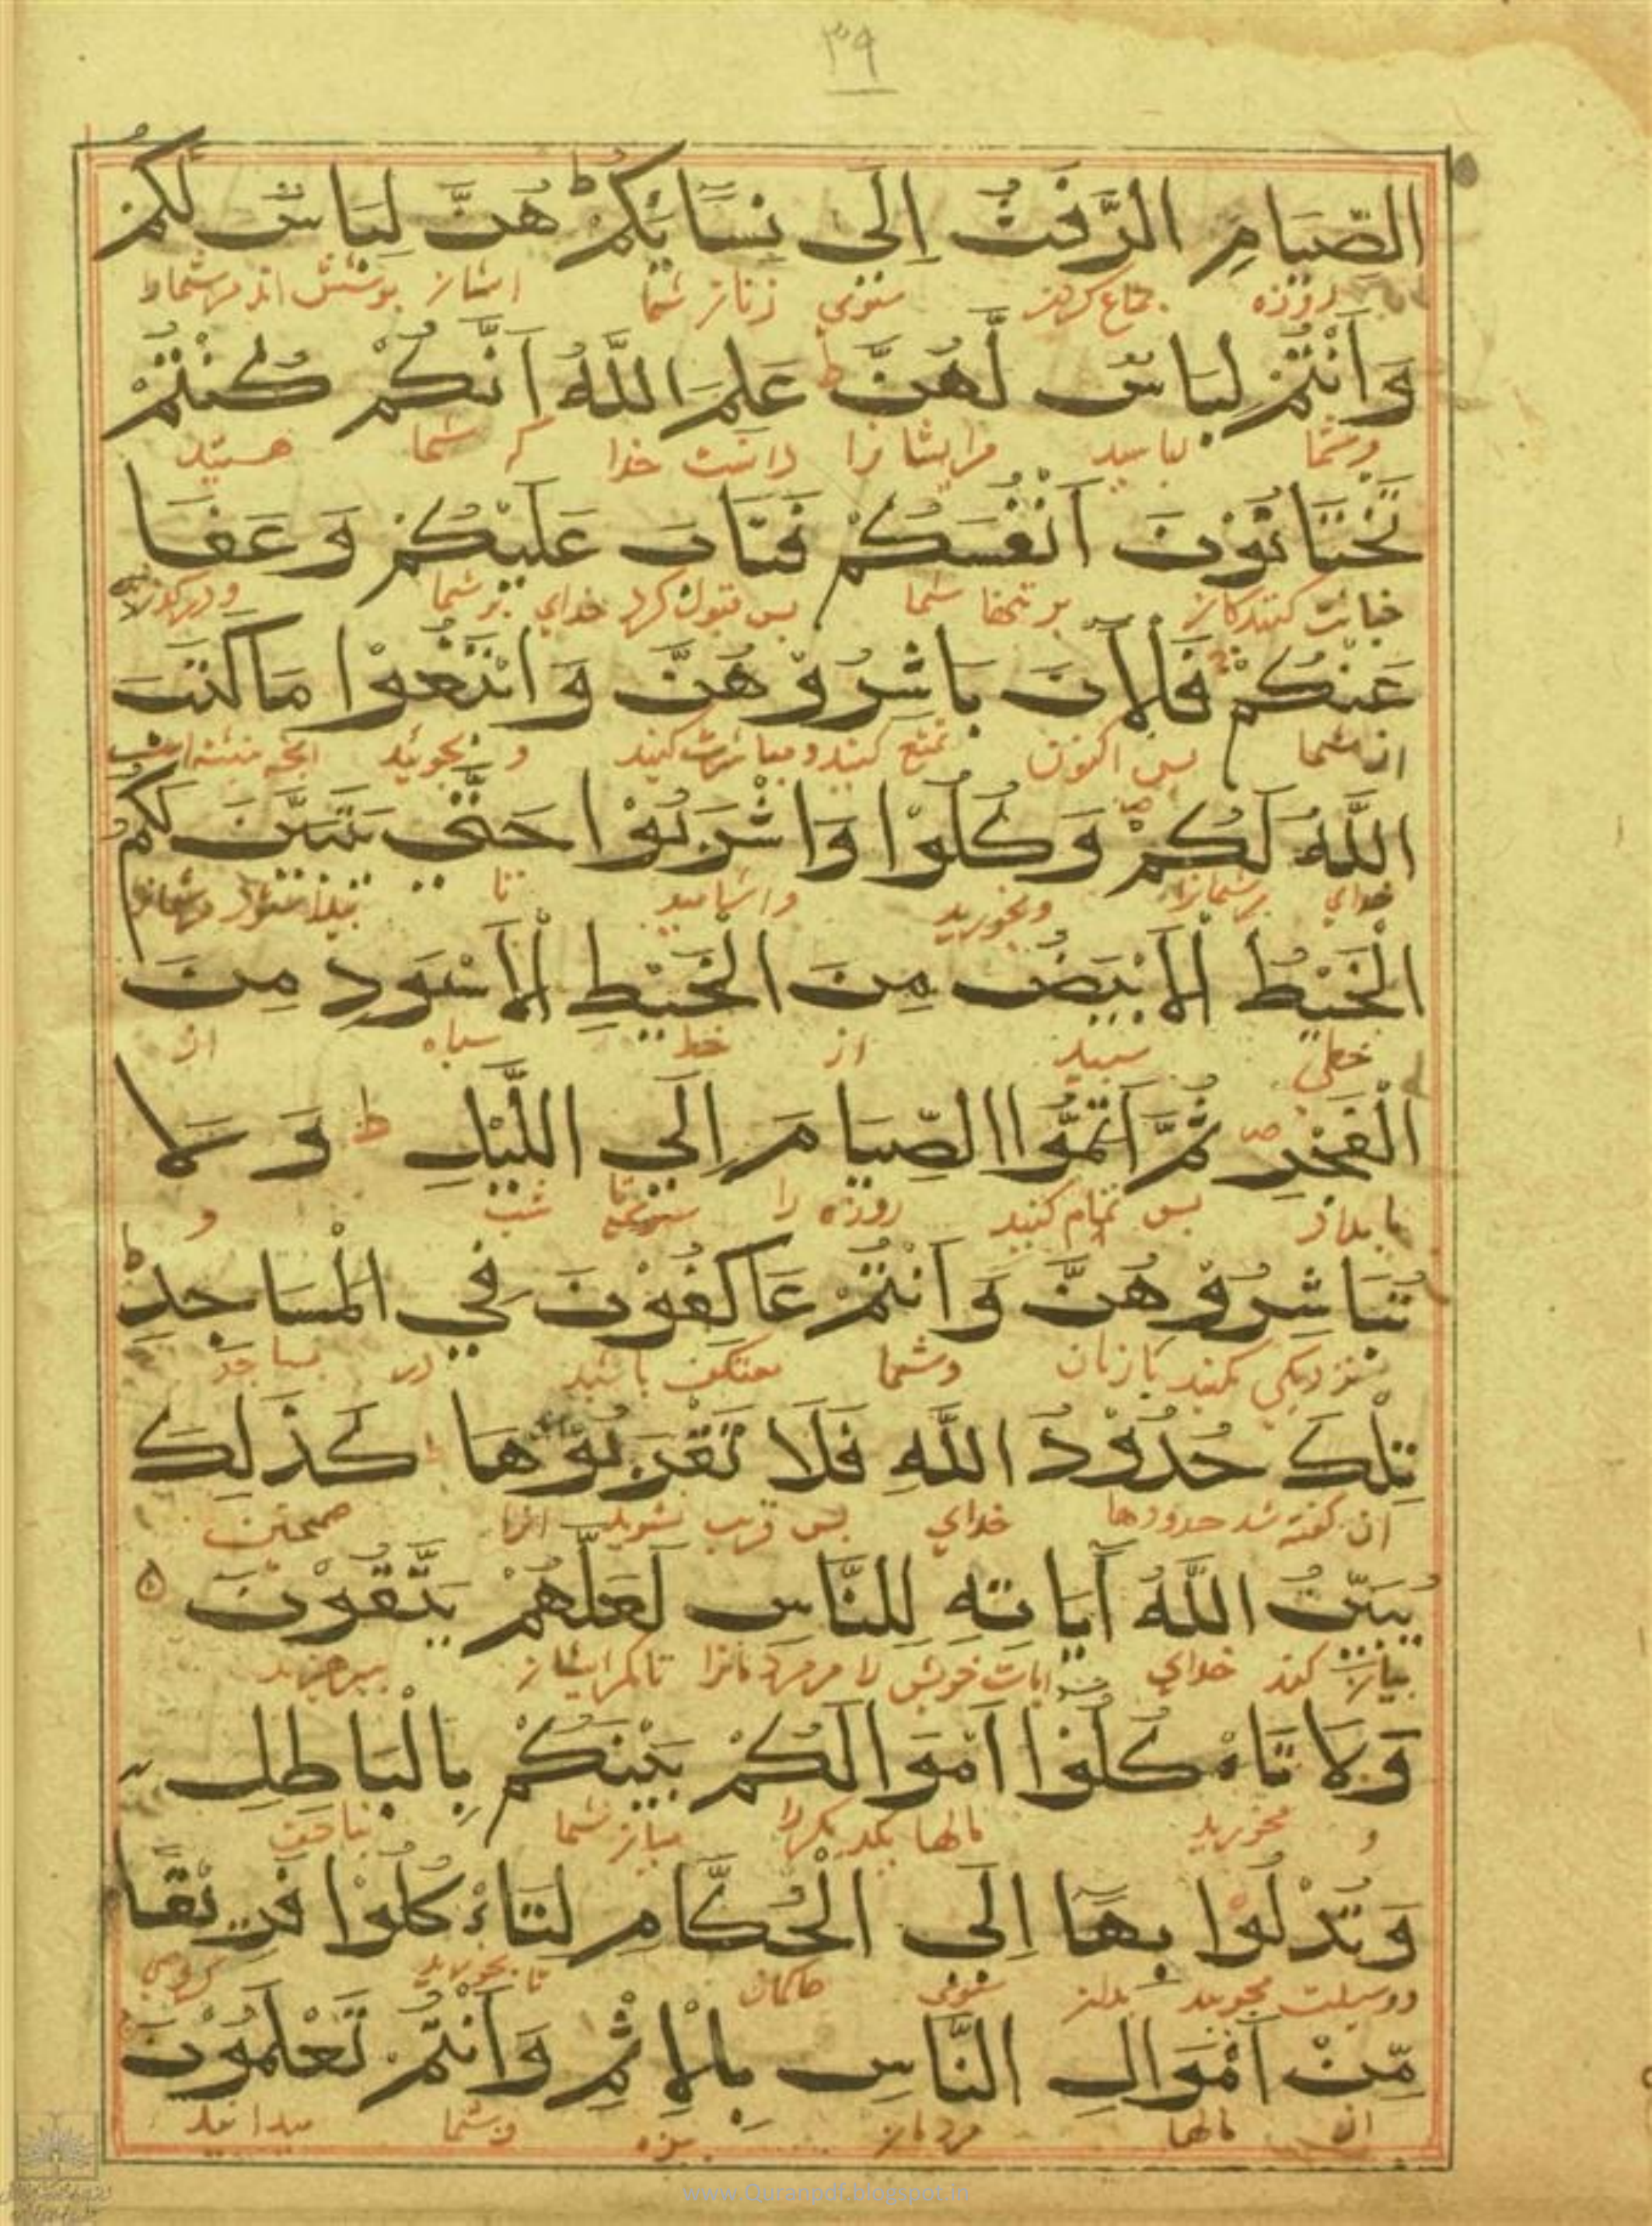 ۳۹
الصِّيَامِ الرَّفَثُ إِلَى نِسَايِٕكُمْ ط هُنَّ لِبَاسٌ لَكُمْ
روزه جماع کردن سوی زنان شما ایشان پوشش اند مر شما را
وَاَنْتُمْ لِبَاسٌ لَّهُنَّ ط عَلِمَ اللَّهُ اَنَّكُمْ كُنْتُمْ
وشما لباسید مرایشانرا دانست خدا که شما هستید
تَخْتَانُوْنَ اَنْفُسَكُمْ فَتَابَ عَلَيْكُمْ وَعَفَا
خیانت کنندکان بر تنها شما پس قبول کرد خدای بر شما
عَنْكُمْ فَلْآنَ بَاشِرُوْهُنَّ وَابْتَغُوْا مَا كَتَبَ
از شما پس اکنون تمتع کنید و مباشرت کنید و بجویید انچه
اللَّهُ لَكُمْ وَكُلُوْا وَاشْرَبُوْا حَتَّى يَتَبَيَّنَ لَكُمُ
خدای بر شمانرا وبخورید واشامید تا
الْخَيْطُ الْاَبْيَضُ مِنَ الْخَيْطِ الْاَسْوَدِ مِنَ
خطی سپید از خط سیاه از
الْفَجْرِ ص ثُمَّ اَتِمُّوا الصِّيَامَ اِلَى اللَّيْلِ ط وَلَا
بامداد پس تمام کنید روزه را تا شب و
تُبَاشِرُوْهُنَّ وَاَنْتُمْ عَاكِفُوْنَ فِي الْمَسَاجِدِ ط
نزدیکی مکنید با زنان وشما معتکف باشید در مساجد
تِلْكَ حُدُوْدُ اللَّهِ فَلَا تَقْرَبُوْهَا كَذَلِكَ
ان کفته شد حدودها خدای پس قریب نشوید انرا همچنین
يُبَيِّنُ اللَّهُ اٰيَاتِهِ لِلنَّاسِ لَعَلَّهُمْ يَتَّقُوْنَ
بیان کند خدای ایات خویش را مر مردمانرا تا مکر ایشان بپرهیزند
وَلَا تَاْكُلُوْا اَمْوَالَكُمْ بَيْنَكُمْ بِالْبَاطِلِ
و مخورید مالها یکدیکر را میان شما بناحق
وَتُدْلُوْا بِهَا اِلَى الْحُكَّامِ لِتَاْكُلُوْا فَرِيْقًا
ووسیلت مجویید بدان سوی حاکمان تا بخورید کروهی
مِّنْ اَمْوَالِ النَّاسِ بِالْاِثْمِ وَاَنْتُمْ تَعْلَمُوْنَ
از مالها مردمان بزه وشما میدانید
www.Quranpdf.blogspot.in